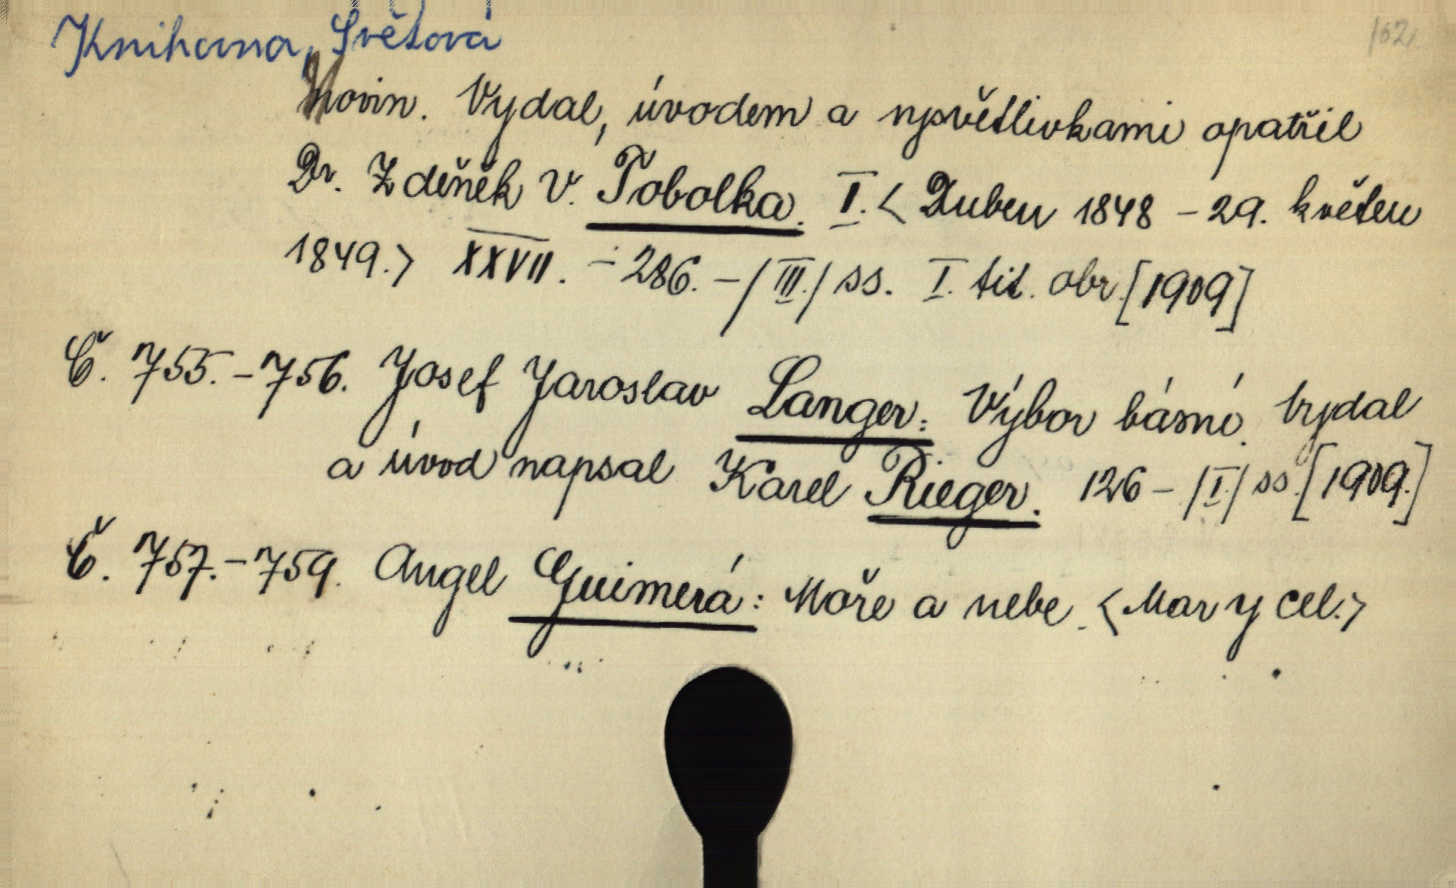 Knihovna, Světová
102.
Novin. Vydal, úvodem a vysvětlivkami opatřil
Dr. Zdeněk V. Tobolka. I. < Duben 1848 – 29. květen
1849.> XXVII. – 286. – /III./ ss. I. tit. obr. [1909]
Č. 755. – 756. Josef Jaroslav Langer: Výbor básní. Vydal
a úvod napsal Karel Rieger. 126 – /I./ ss. [1909.]
Č. 757. – 759. Angel Guimerá: Moře a nebe. <Mar y cel.>